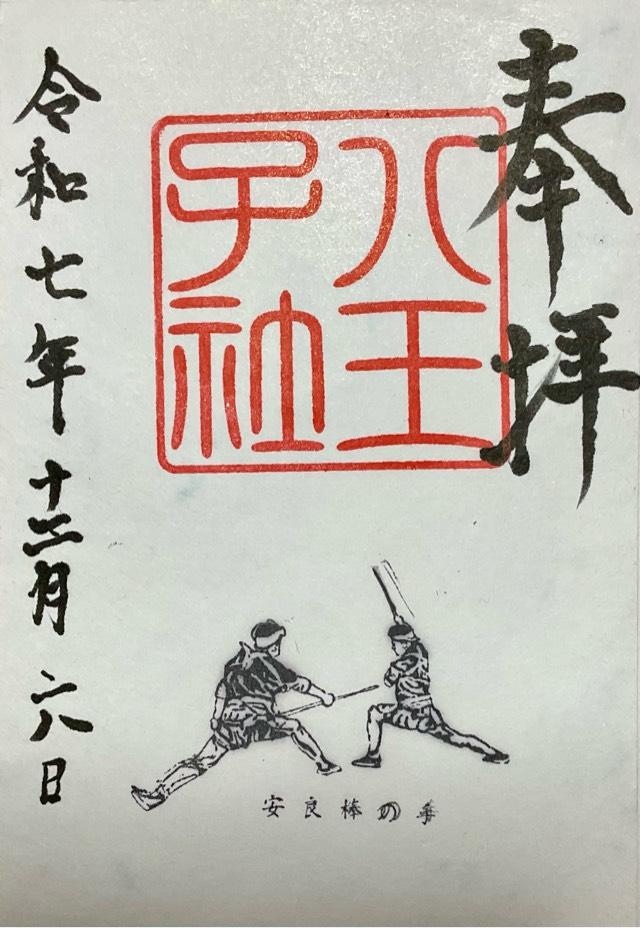 奉拝
八王子社
令和七年十二月六日
安良棒の手